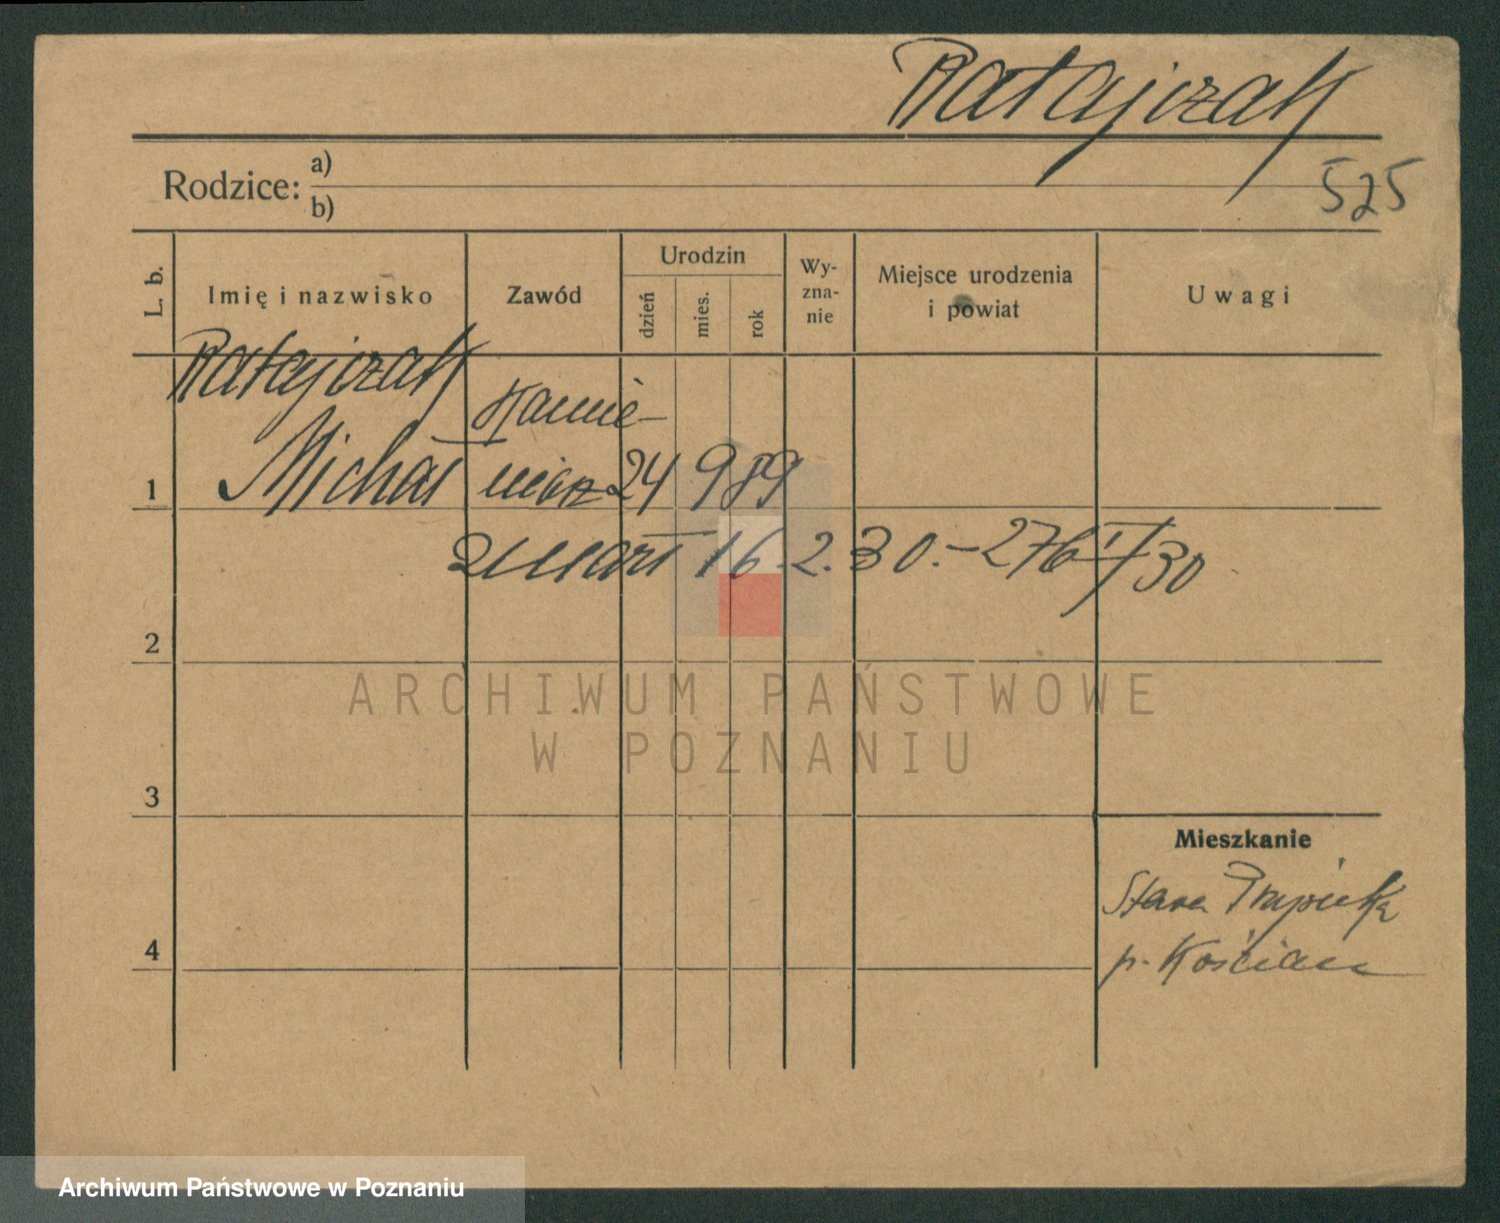 Ratajczak
Rodzice: a)
b)
525
L. b.
Imię i nazwisko
Zawód
Urodzin
dzień
mies.
rok
Wy-
zna-
nie
Miejsce urodzenia
i powiat
Uwagi
Ratajczak
Michał
Kamie-
niarz
1
24 9 89
zmarł 16.2.30.-276/I/30
2
ARCHIWUM PAŃSTWOWE
W POZNANIU
3
Mieszkanie
Stara
p. Kościan
4
Archiwum Państwowe w Poznaniu